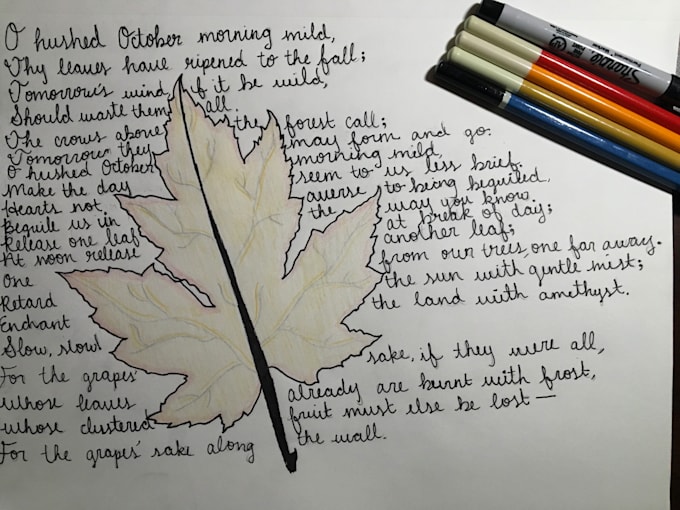 O hushed October morning mild,
Thy leaves have ripened to the fall;
Tomorrow's wind, if it be wild,
Should waste them all.
The crows above the forest call;
Tomorrow they may form and go.
O hushed October morning mild,
Make the day seem to us less brief.
Hearts not averse to being beguiled,
Beguile us in the way you know.
Release one leaf at break of day;
At noon release another leaf;
One from our trees, one far away.
Retard the sun with gentle mist;
Enchant the land with amethyst.
Slow, slow!
For the grapes' sake, if they were all,
Whose leaves already are burnt with frost,
Whose clustered fruit must else be lost—
For the grapes' sake along the wall.
Sharpie